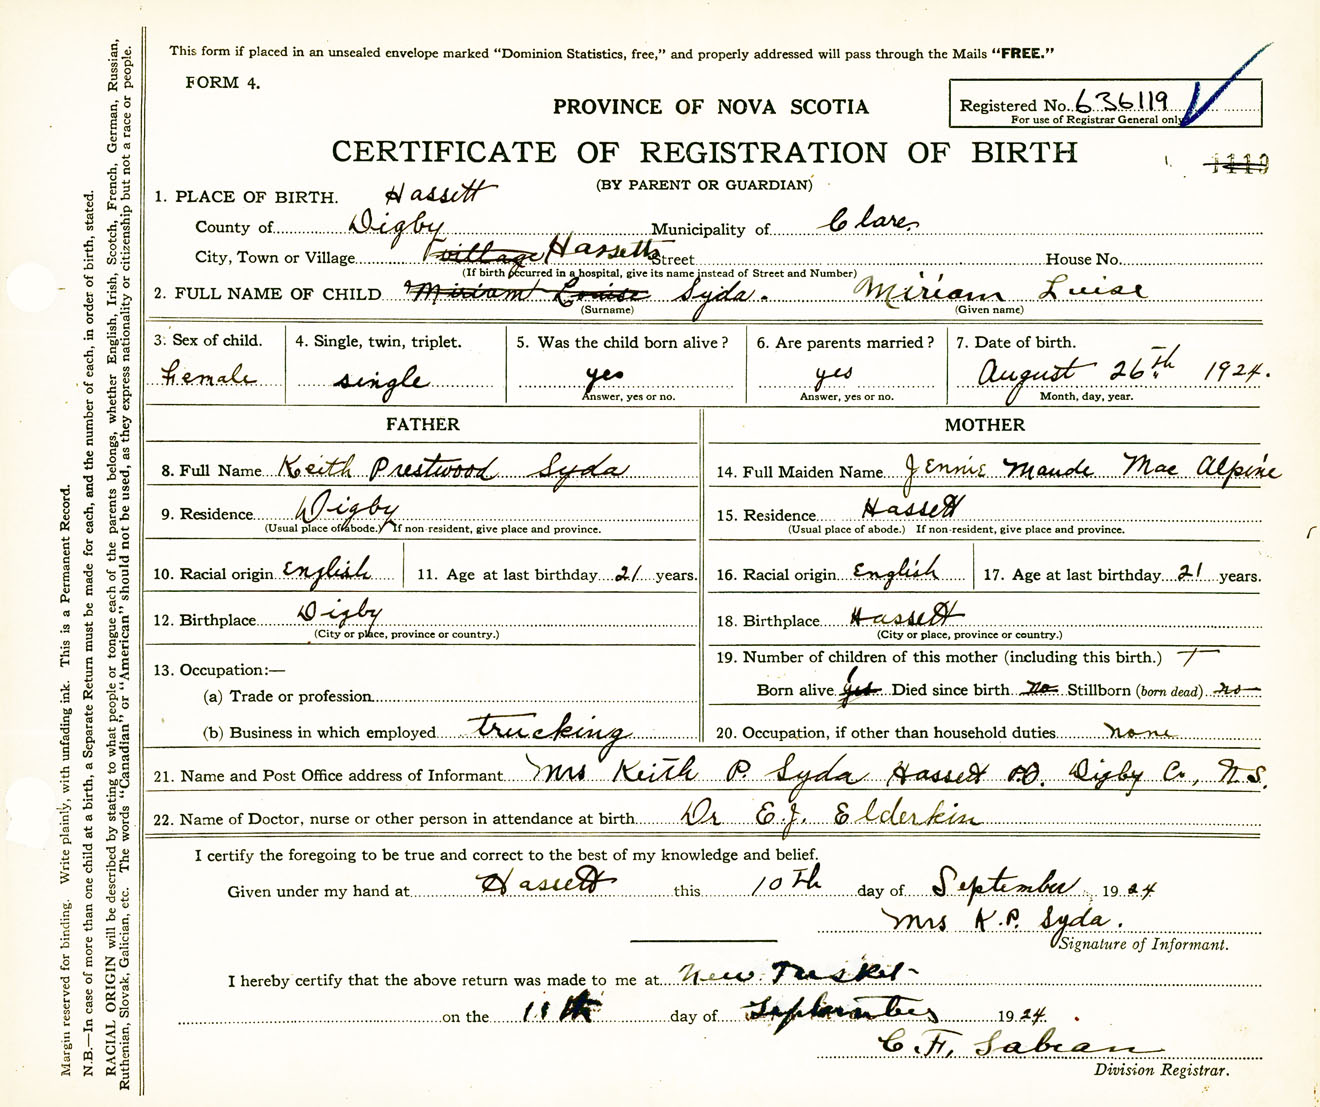 This form if placed in an unsealed envelope marked "Dominion Statistics, free," and properly addressed will pass through the Mails "FREE."
FORM 4.
PROVINCE OF NOVA SCOTIA
Registered No. 636119
For use of Registrar General only
CERTIFICATE OF REGISTRATION OF BIRTH
(BY PARENT OR GUARDIAN)
1. PLACE OF BIRTH. Hassett
County of Digby Municipality of Clare
City, Town or Village village Hassetts Street House No.
(If birth occurred in a hospital, give its name instead of Street and Number)
2. FULL NAME OF CHILD Miriam Louise Syda. Miriam Luise
(Surname) (Given name)
3. Sex of child. 4. Single, twin, triplet. 5. Was the child born alive? 6. Are parents married? 7. Date of birth.
Female single yes yes August 26th 1924.
Answer, yes or no. Answer, yes or no. Month, day, year.
FATHER MOTHER
8. Full Name Keith Prestwood Syda 14. Full Maiden Name Jennie Maude Mac Alpine
9. Residence Digby 15. Residence Hassett
(Usual place of abode.) If non-resident, give place and province. (Usual place of abode.) If non-resident, give place and province.
10. Racial origin English 11. Age at last birthday 21 years. 16. Racial origin English 17. Age at last birthday 21 years.
12. Birthplace Digby 18. Birthplace Hassett
(City or place, province or country.) (City or place, province or country.)
13. Occupation:— 19. Number of children of this mother (including this birth.)
(a) Trade or profession Born alive yes Died since birth no Stillborn (born dead) no
(b) Business in which employed trucking 20. Occupation, if other than household duties none
21. Name and Post Office address of Informant Mrs Keith P. Syda Hassett P.O. Digby Co, N.S.
22. Name of Doctor, nurse or other person in attendance at birth Dr E.J. Elderkin
I certify the foregoing to be true and correct to the best of my knowledge and belief.
Given under my hand at Hassett this 10th day of September 1924
Mrs K.P. Syda.
Signature of Informant.
I hereby certify that the above return was made to me at New Tusket
on the 11th day of September 1924.
C. F. Sabean
Division Registrar.
Margin reserved for binding. Write plainly, with unfading ink. This is a Permanent Record.
N.B.—In case of more than one child at a birth, a Separate Return must be made for each, and the number of each, in order of birth, stated.
RACIAL ORIGIN will be described by stating to what people or tongue each of the parents belongs, whether English, Irish, Scotch, French, German, Russian,
Ruthenian, Slovak, Galician, etc. The words "Canadian" or "American" should not be used, as they express nationality or citizenship but not a race or people.